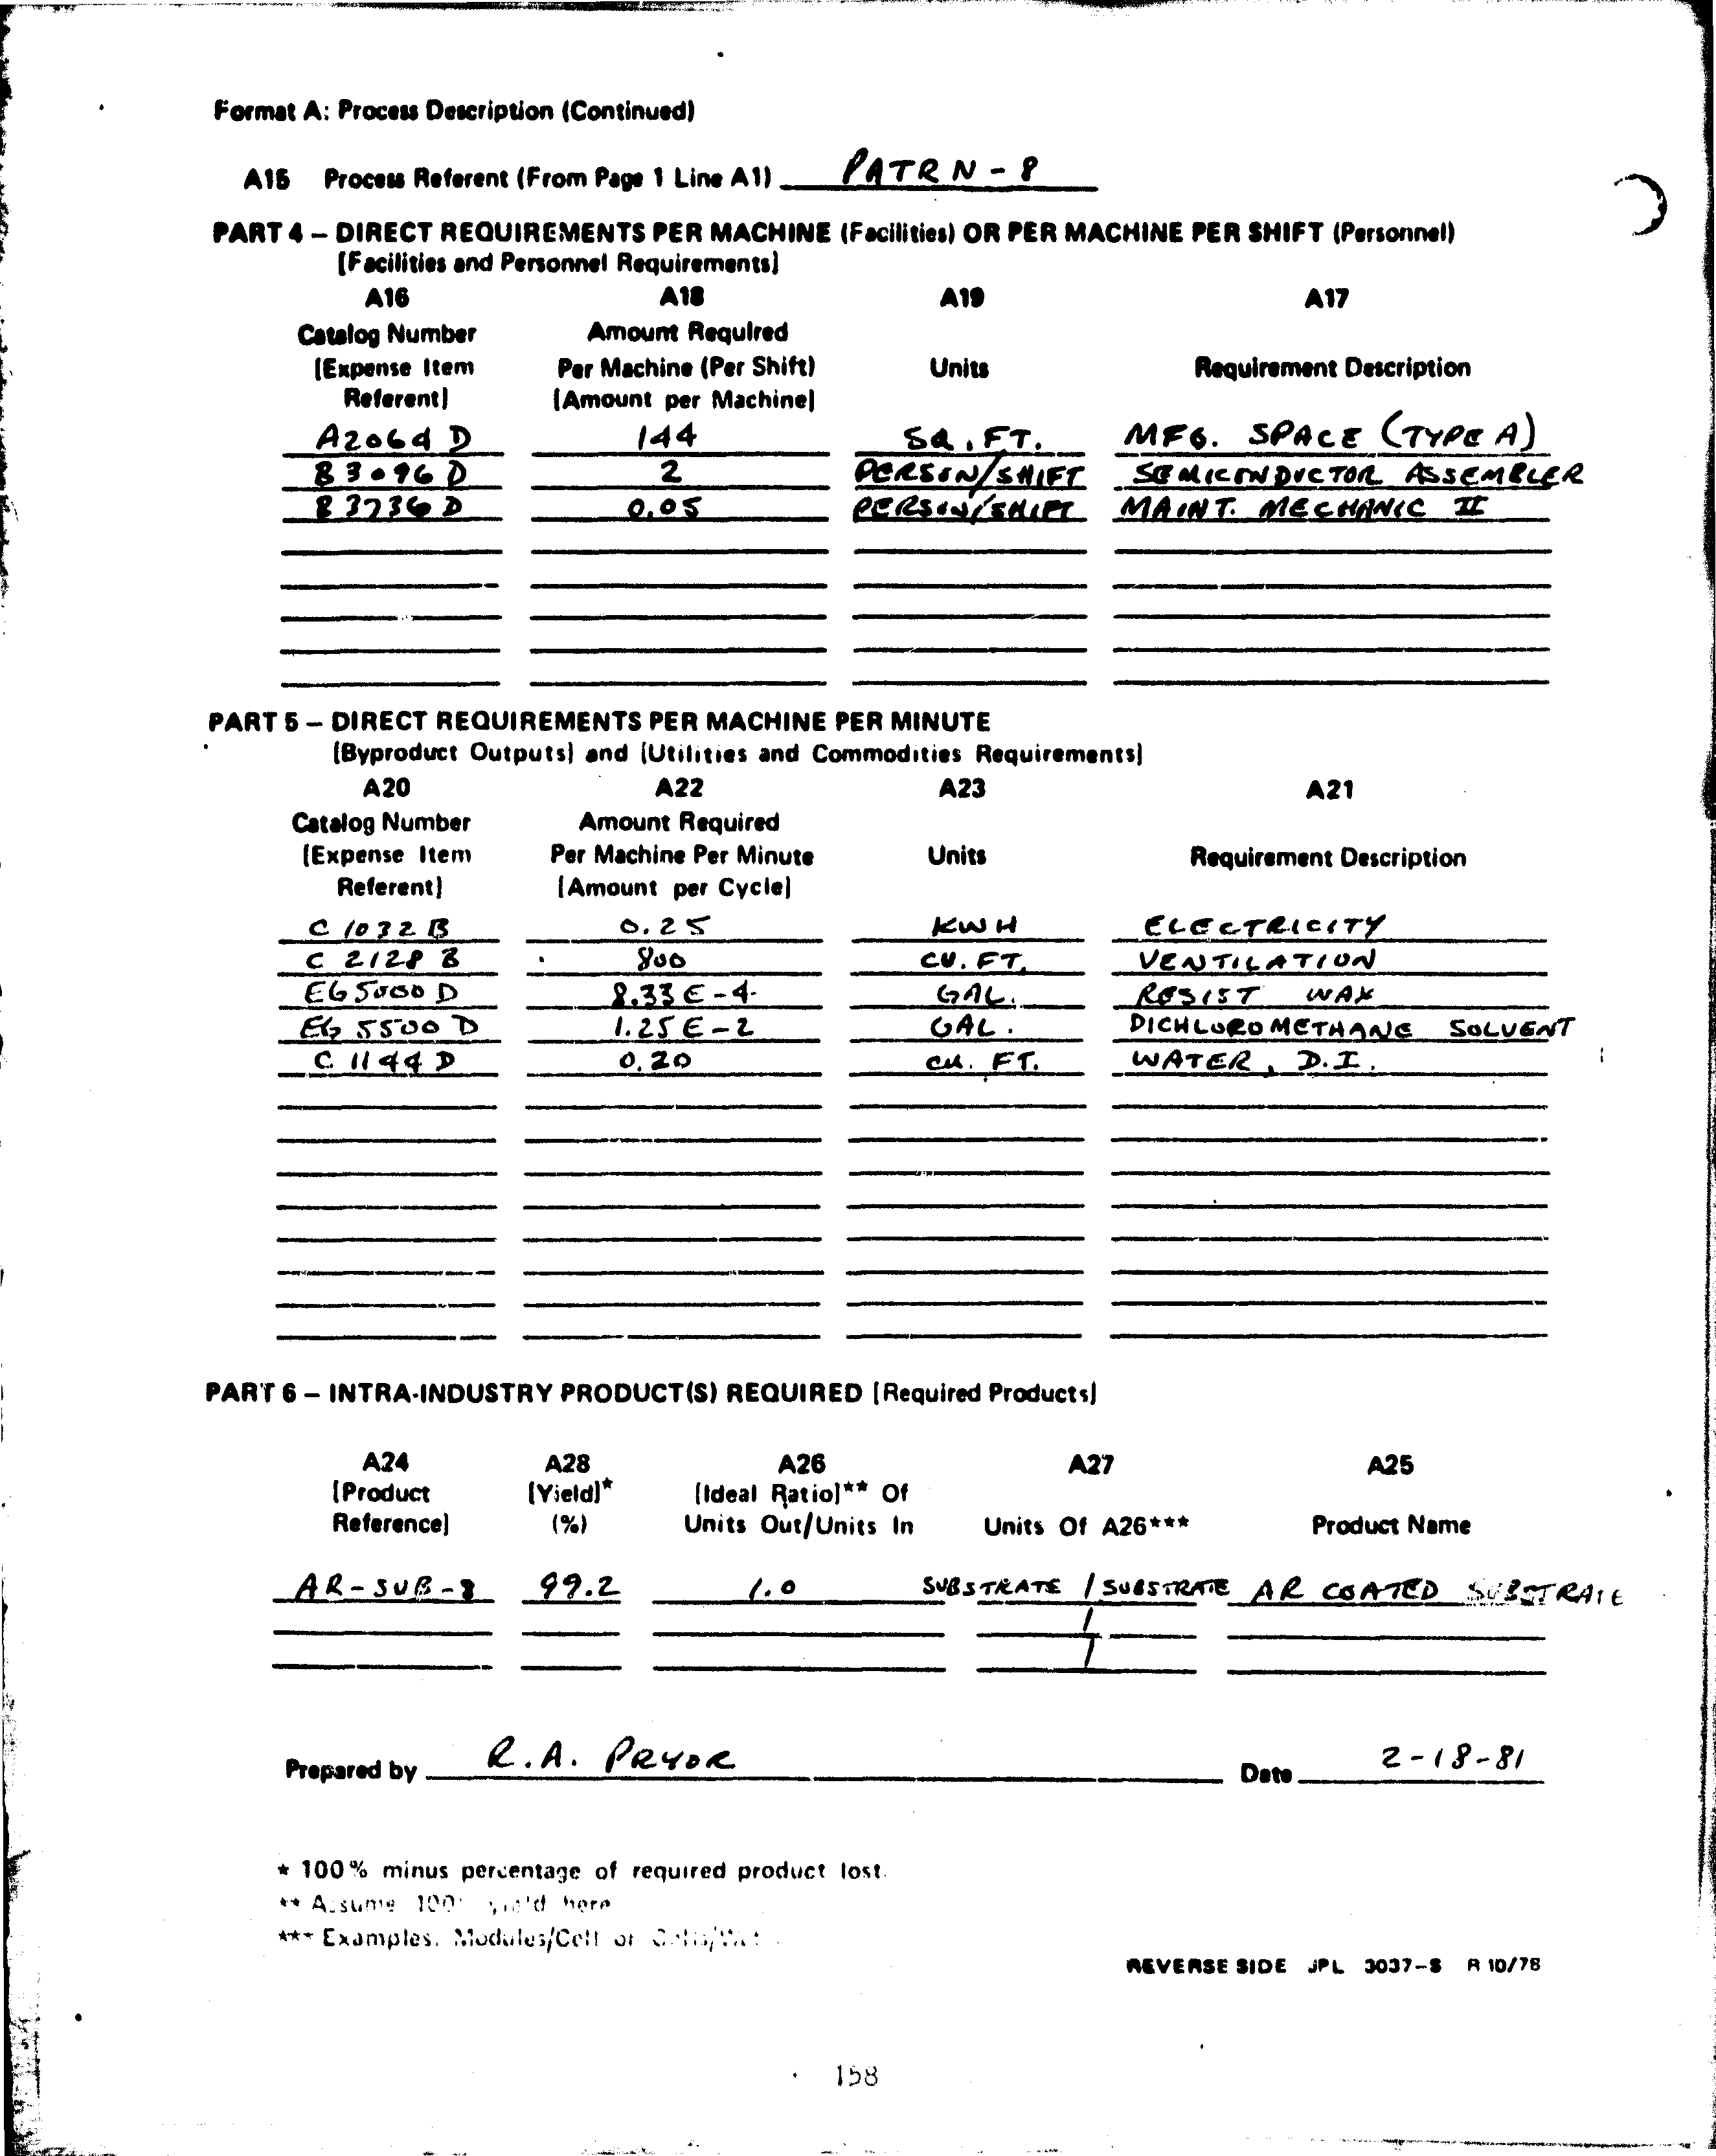 Format A: Process Description (Continued)
A15 Process Referent (From Page 1 Line A1) PATRN-8
PART 4 – DIRECT REQUIREMENTS PER MACHINE (Facilities) OR PER MACHINE PER SHIFT (Personnel)
[Facilities and Personnel Requirements]
A16 A18 A19 A17
Catalog Number Amount Required
[Expense Item Per Machine (Per Shift) Units Requirement Description
Referent] [Amount per Machine]
A2064D 144 SQ. FT. MFG. SPACE (TYPE A)
B3096D 2 PERSON/SHIFT SEMICONDUCTOR ASSEMBLER
B3736D 0.05 PERSON/SHIFT MAINT. MECHANIC II
PART 5 – DIRECT REQUIREMENTS PER MACHINE PER MINUTE
[Byproduct Outputs] and [Utilities and Commodities Requirements]
A20 A22 A23 A21
Catalog Number Amount Required
[Expense Item Per Machine Per Minute Units Requirement Description
Referent] [Amount per Cycle]
C1032B 0.25 KWH ELECTRICITY
C2128B 800 CU. FT. VENTILATION
EG5000D 8.33E-4 GAL. RESIST WAX
EG5500D 1.25E-2 GAL. DICHLOROMETHANE SOLVENT
C1144D 0.20 CU. FT. WATER, D.I.
PART 6 – INTRA-INDUSTRY PRODUCT(S) REQUIRED [Required Products]
A24 A28 A26 A27 A25
[Product [Yield]* [Ideal Ratio]** Of
Reference] (%) Units Out/Units In Units Of A26*** Product Name
AR-SUB-8 99.2 1.0 SUBSTRATE / SUBSTRATE AR COATED SUBSTRATE
/
/
Prepared by R.A. PRYOR Date 2-18-81
* 100% minus percentage of required product lost.
** Assume 100% yield here
*** Examples: Modules/Cell or
REVERSE SIDE JPL 3037-S R 10/78
158